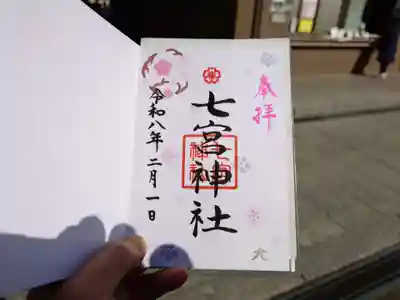 奉拝
七宮神社
七宮
神社
令和八年二月一日
六